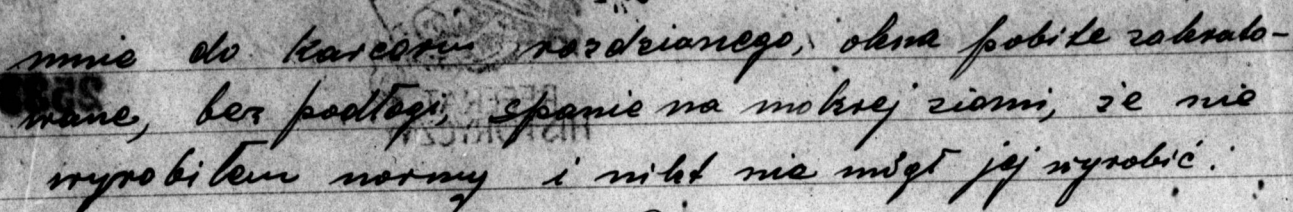 mnie do karceru rozdzianego, okna pobite zakrato-
wane, bez podłogi, spanie na mokrej ziemi, że nie
wyrobiłem normy i nikt nie mógł jej wyrobić.